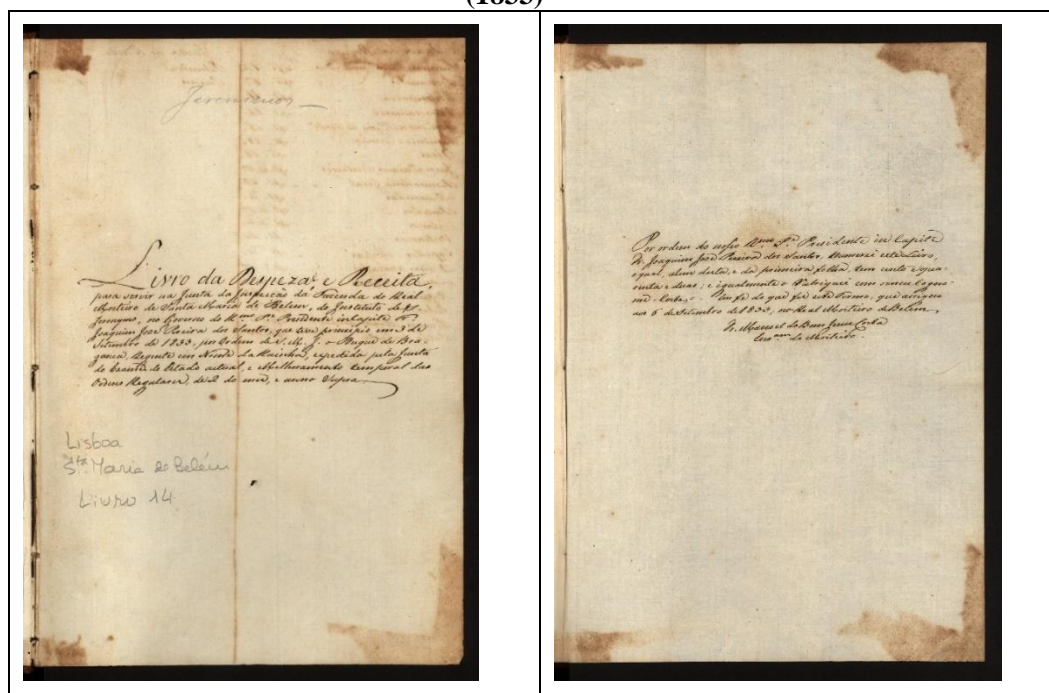 (1833)
Jeronimos
Livro da Despeza, e Receita,
para servir na Junta da Inspecção da Fazenda do Real
Mosteiro de Santa Maria de Belem, do Instituto de Je-
ronymo, no Governo do R.mo P.e Presidente in Capite Fr.
Joaquim Joze Pereira dos Santos, que teve principio em 3 de
Setembro de 1833, por Ordem de S. M. J. o Duque de Bra-
gança, Regente em Nome da Rainha, expedida pela Junta
do Exame do Estado actual, e Melhoramento temporal das
Ordens Regulares, de 2 do mez, e anno supra
Lisboa
Sta Maria de Belém
Livro 14
Por ordem do nosso R.mo P.e Presidente in Capite
Fr. Joaquim José Pereira dos Santos, numerei este Livro,
o qual, alem desta, e da primeira folha, tem cento e qua-
renta e duas; e igualmente o rubriquei com o meu Cogno-
me - Costa, - Em fé do que fiz este Termo, que assignei
aos 6 de Setembro de 1833, no Real Mosteiro de Belem,
Fr. Manoel do Bom Jesus Costa
do Mosteiro.